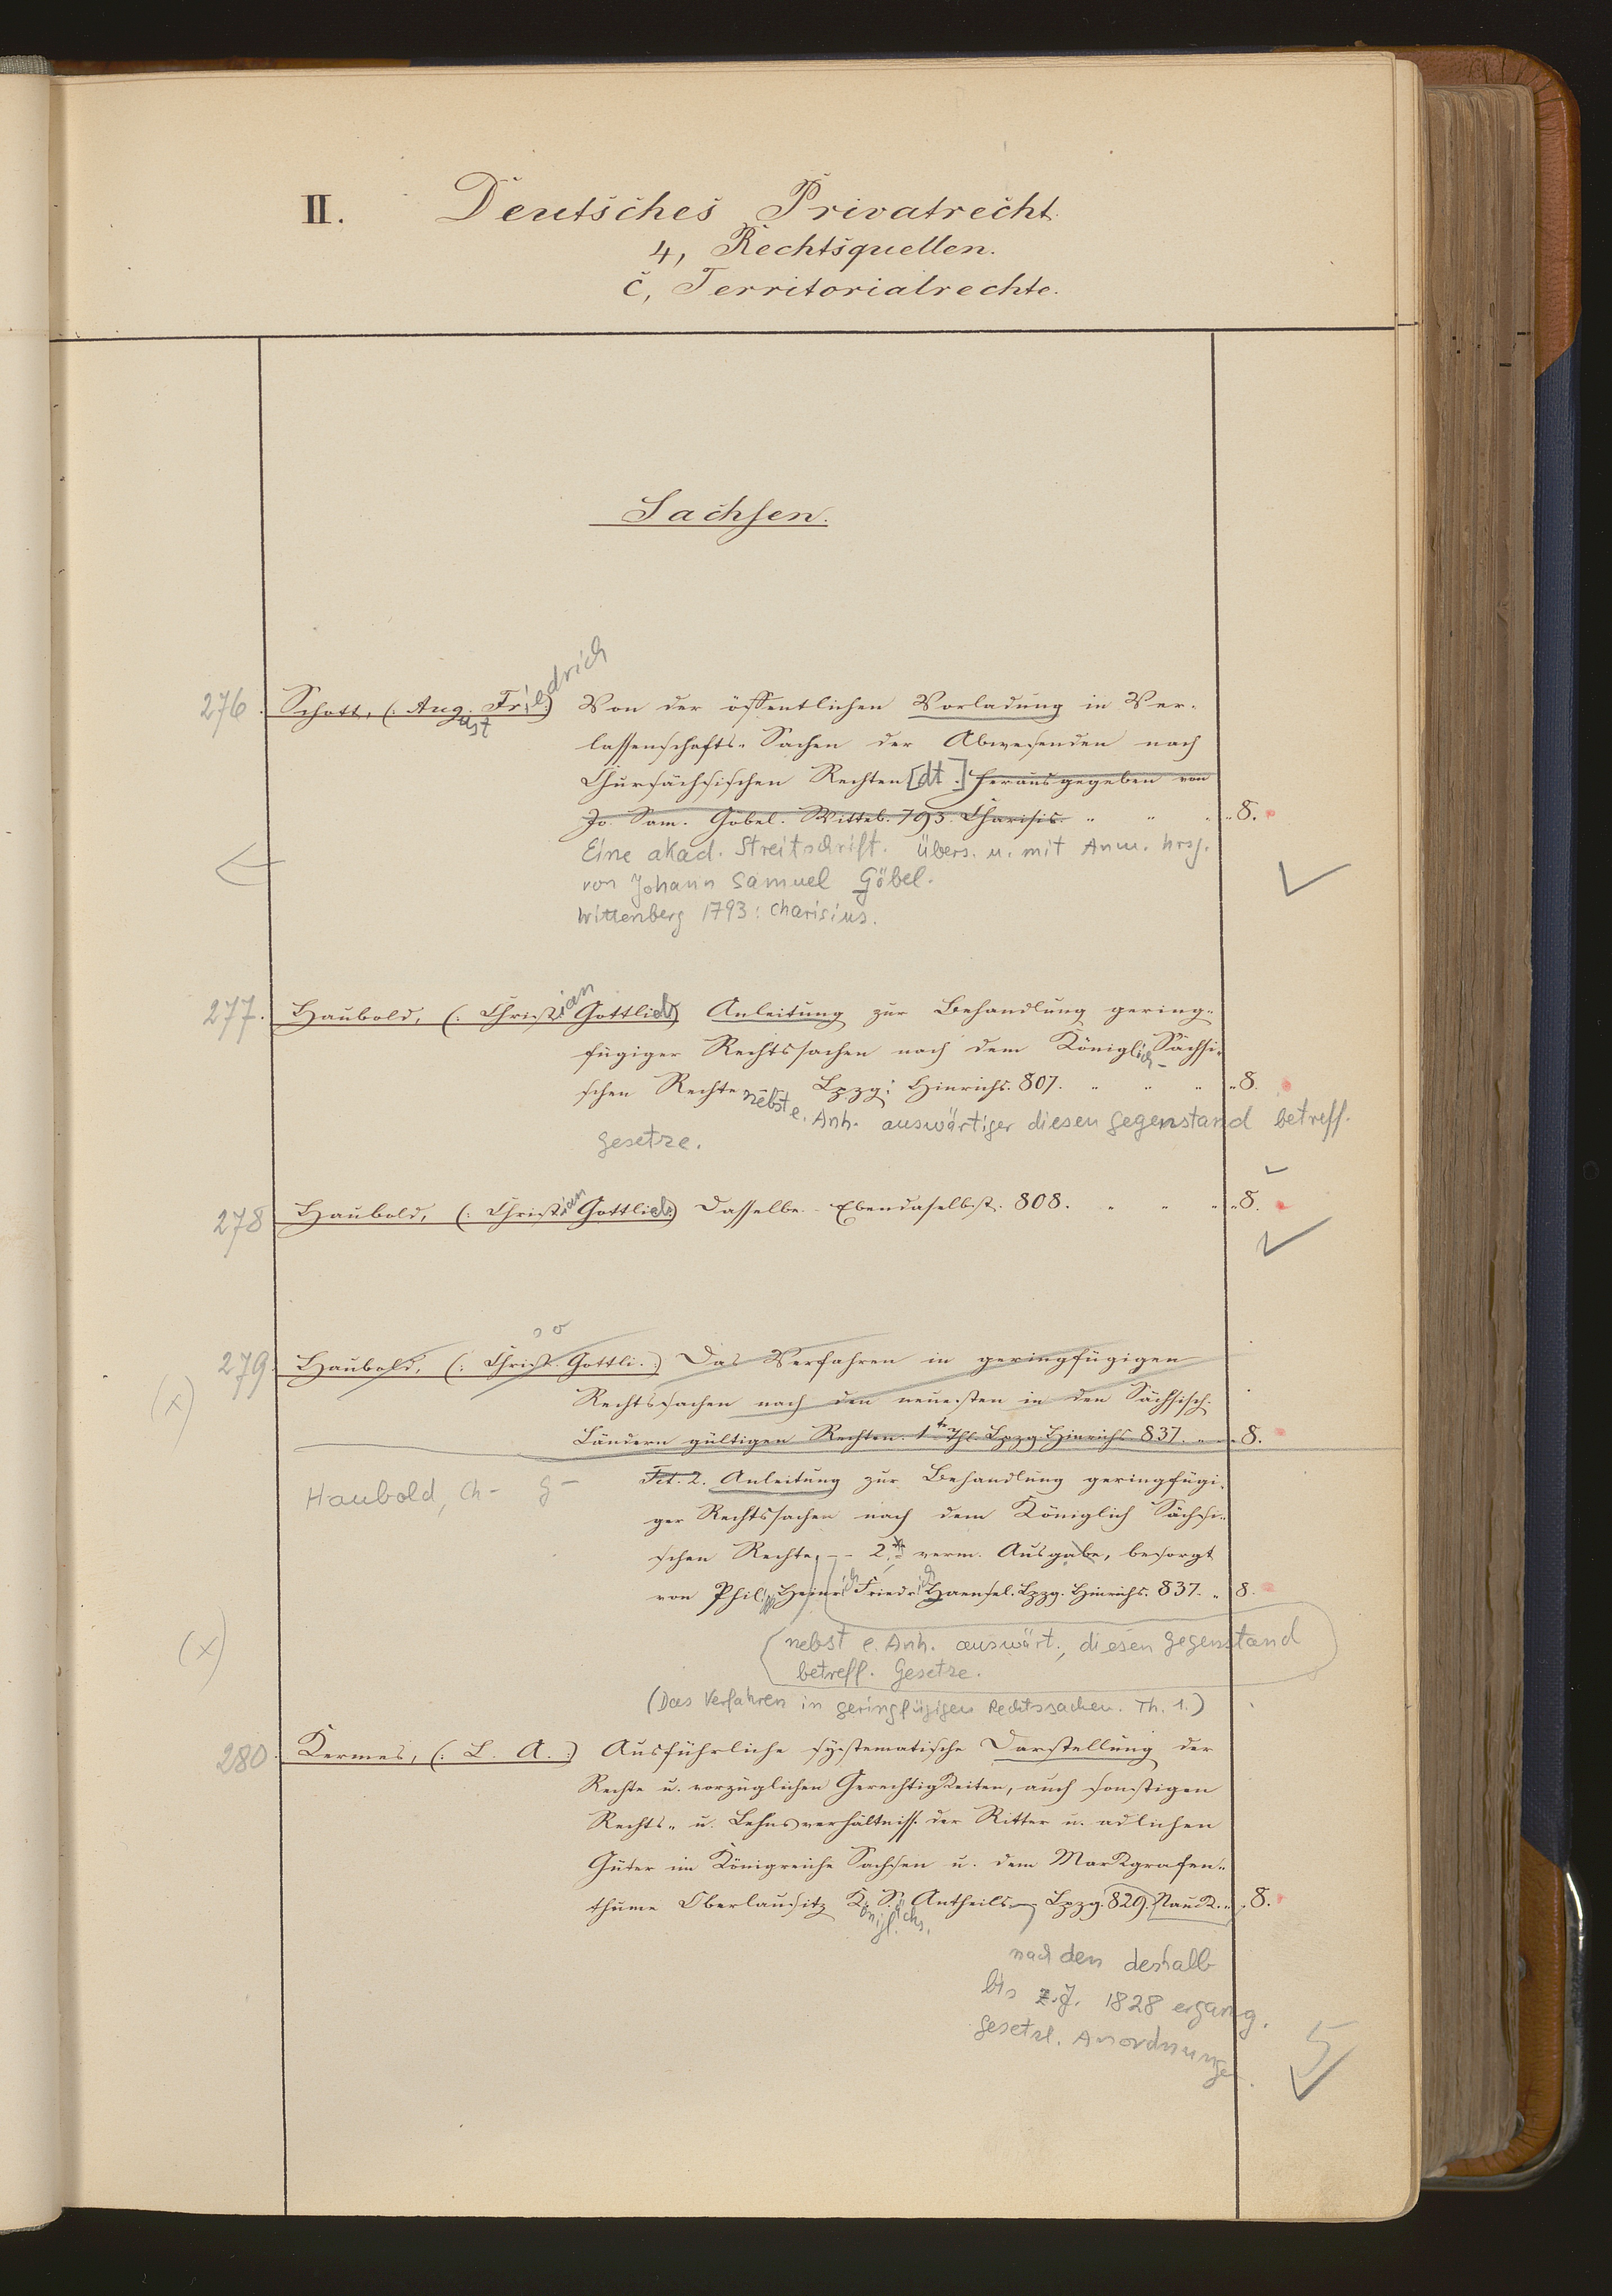 II. Deutsches Privatrecht.
4, Rechtsquellen.
c, Territorialrechte.
Sachsen.
276. Schott, (: Aug. Fr. :) Von der öffentlichen Vorladung in Ver-
ust iedrich
lassenschafts- Sachen der Abwesenden nach
Chursächsischen Rechten [dt.] herausgegeben von
Jo. Sam. Göbel. Witteb. 793. Charisis. " " " 8.
Eine akad. Streitschrift. Übers. u. mit Anm. hrsg.
von Johann Samuel Göbel.
Wittenberg 1793: Charisius.
277. Haubold, (: Christian Gottlieb) Anleitung zur Behandlung gering-
fügiger Rechtssachen nach dem Königlich Sächsi-
schen Rechte -- Lpzg: Hinrichs. 807. " " " " 8.
nebst e. Anh. auswärtiger diesen Gegenstand betreff.
Gesetze.
278 Haubold, (: Christian Gottlieb) Dasselbe. - Ebendaselbst. 808. " " " " 8.
279. Haubold, (: Christ. Gottli. :) Das Verfahren in geringfügigen
(x)
Rechtssachen nach den neuesten in den Sächsisch.
Ländern gültigen Rechten. 1ter Thl. Lpzg. Hinrichs 837. " " 8.
Haubold, Ch- G-
Tit. 2. Anleitung zur Behandlung geringfügi-
ger Rechtssachen nach dem Königlich Sächsi-
schen Rechte, -- 2te verm. Ausgabe, besorgt
von Philipp Heinrich Friedrich Haensel. Lpzg. Hinrichs. 837. " 8.
(x)
(nebst e. Anh. auswärt., diesen Gegenstand
betreff. Gesetze.
(Das Verfahren in geringfügigen Rechtssachen. Th. 1.)
280. Kermes, (: L. A. :) Ausführliche systematische Darstellung der
Rechte u. vorzüglichen Gerechtigkeiten, auch sonstigen
Rechts- u. Lehnsverhältniss. der Ritter u. adlichen
Güter im Königreiche Sachsen u. dem Markgrafen-
thume Oberlausitz K. S. Antheils -- Lpzg. 829. Nauck. " " 8.
önigl. ächs.
nach den deshalb
bis z. J. 1828 ergang.
gesetzl. Anordnungen.
5